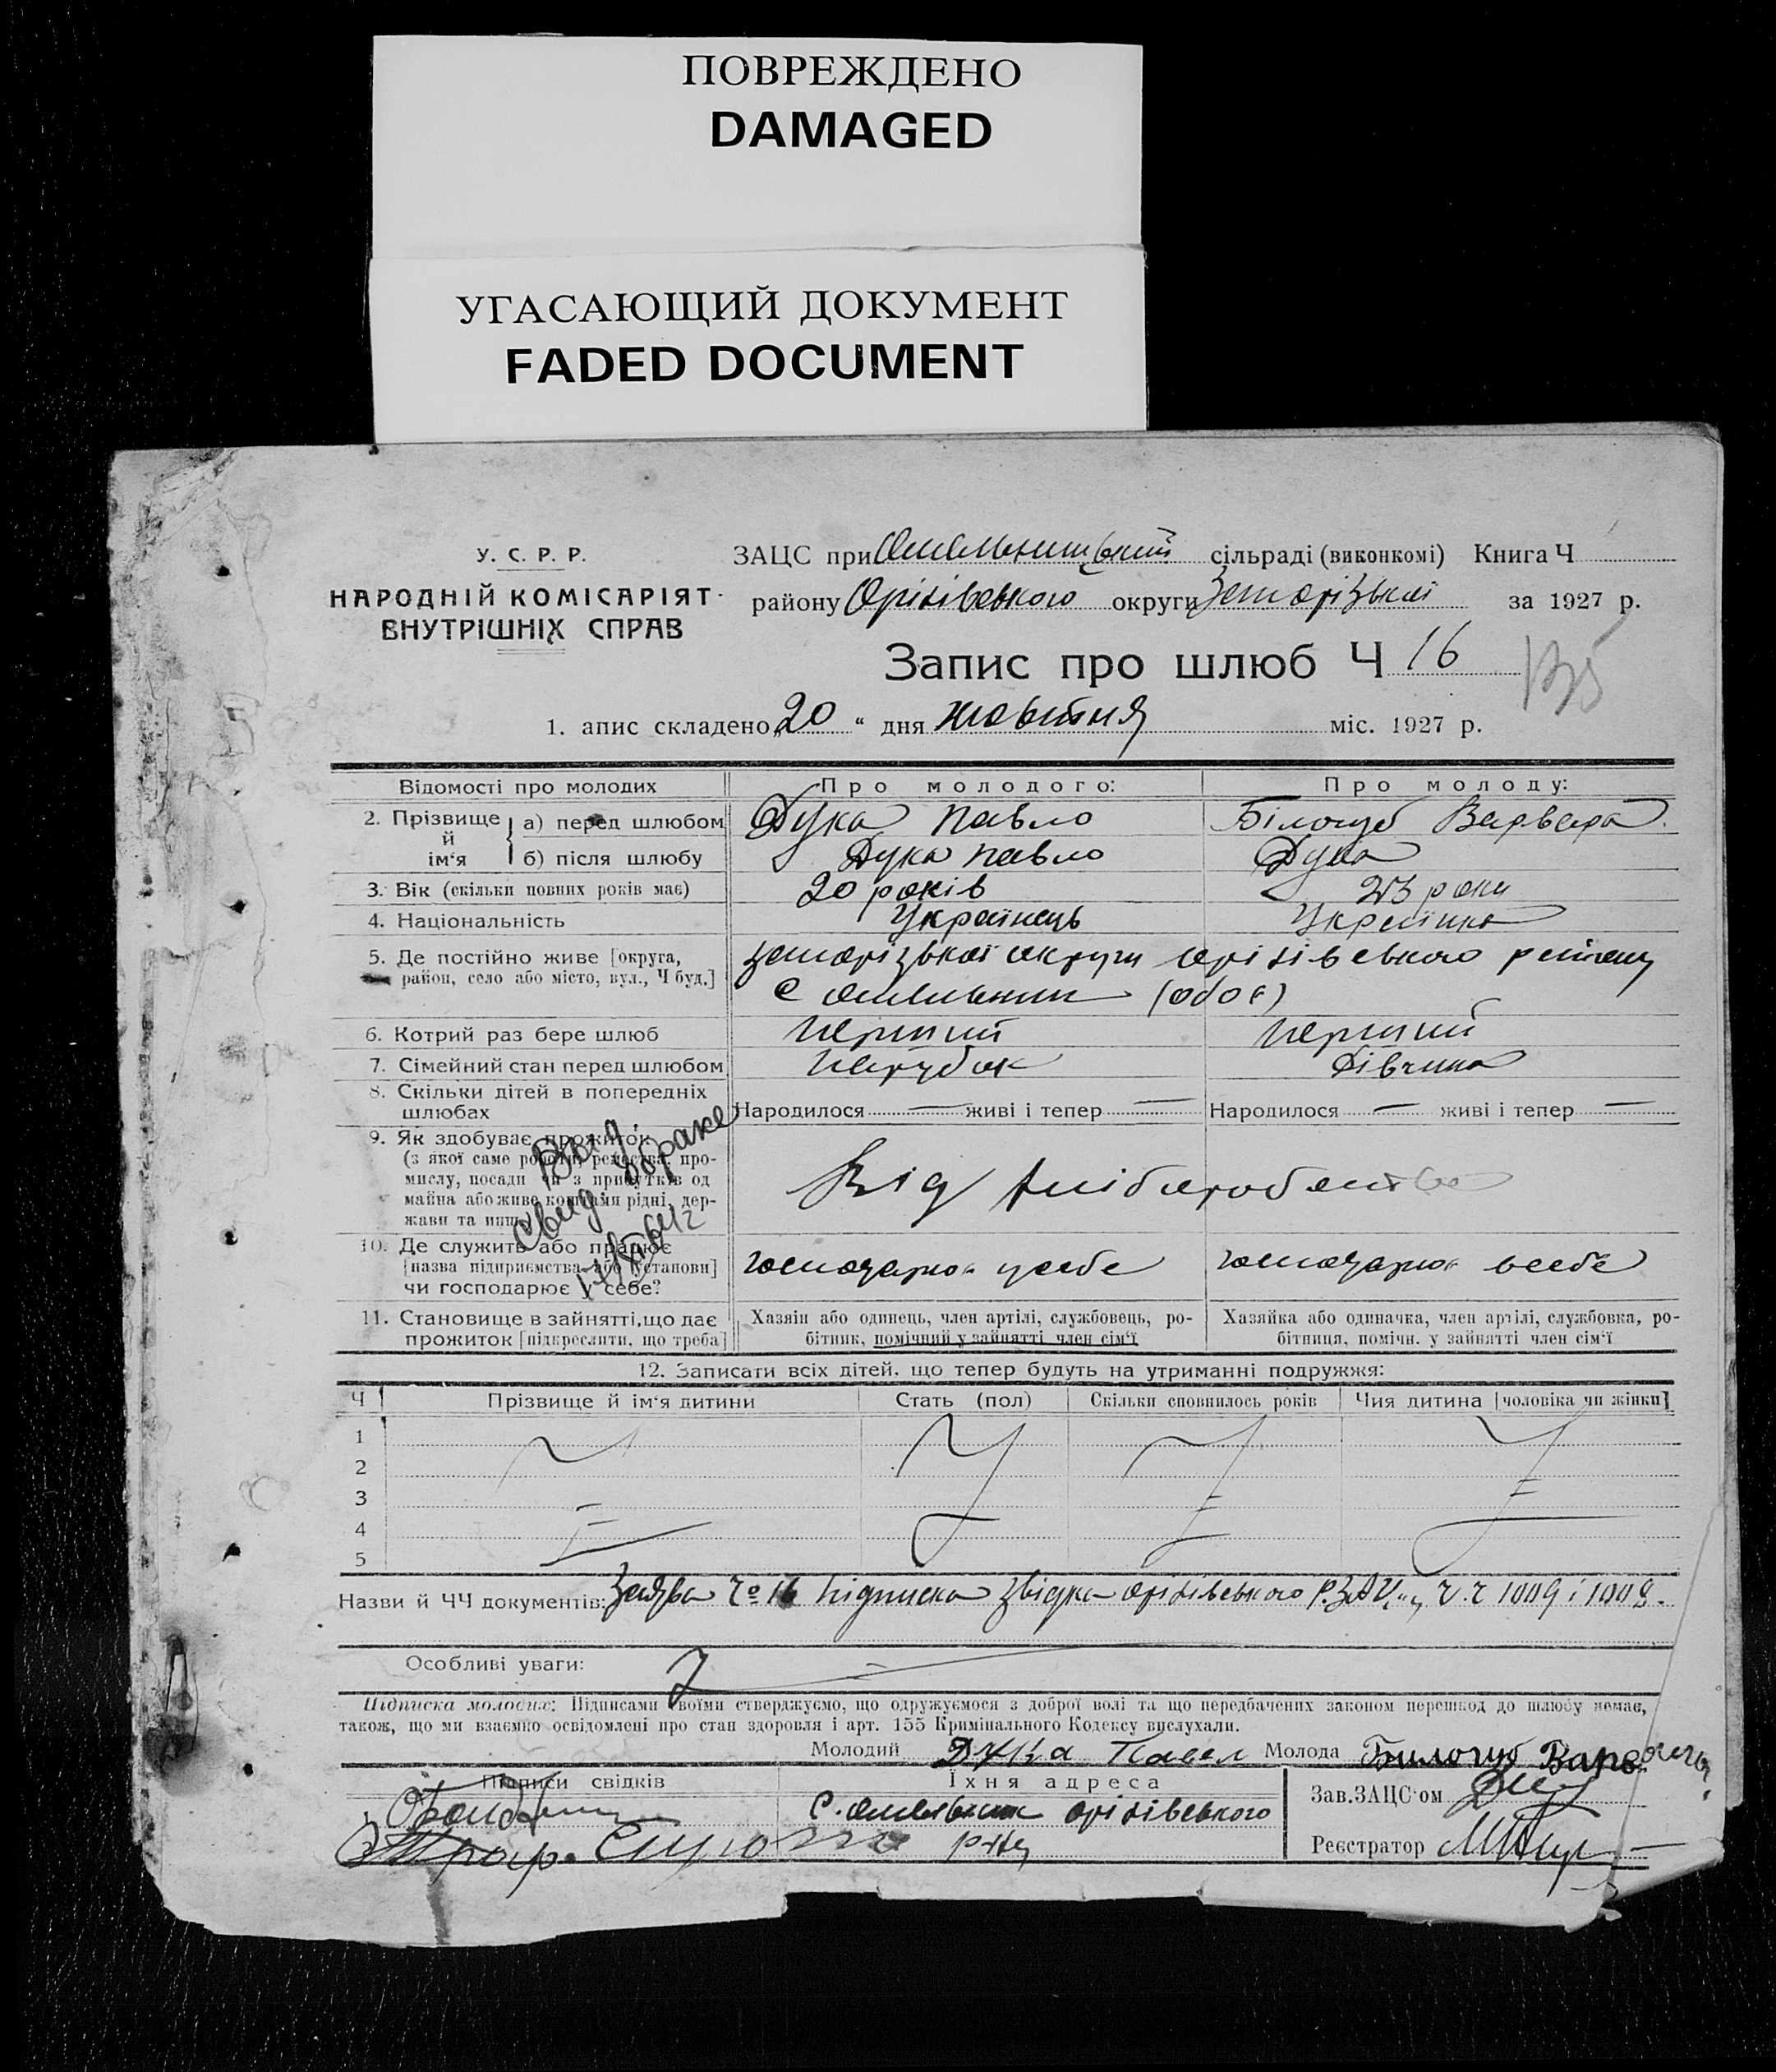 ПОВРЕЖДЕНО
DAMAGED
УГАСАЮЩИЙ ДОКУМЕНТ
FADED DOCUMENT
У. С. Р. Р.
НАРОДНІЙ КОМІСАРІЯТ
ВНУТРІШНІХ СПРАВ
ЗАЦС при Омельницькій сільраді (виконкомі) Книга Ч
району Оріхівського округи Запорізької за 1927 р.
Запис про шлюб Ч 16
1. апис складено „20“ дня жовтня міс. 1927 р.
Відомості про молодих Про молодого: Про молоду:
2. Прізвище й ім‘я а) перед шлюбом Дука Павло Білогуб Варвара.
б) після шлюбу Дука Павло Дука
3. Вік (скільки повних років має) 20 років 23 роки
4. Національність Українець Українка
5. Де постійно живе [округа, Запорізької округи Оріхівського району
район, село або місто, вул., Ч буд.] с Омельник (обоє)
6. Котрий раз бере шлюб перший перший
7. Сімейний стан перед шлюбом парубок дівчина
8. Скільки дітей в попередніх
шлюбах Народилося — живі і тепер — Народилося — живі і тепер —
9. Як здобуває прожиток
(з якої саме роботи, ремества, про-
мислу, посади чи з прибутків од
майна або живе коштами рідні, дер-
жави та инш.
Від хліборобства
Выд.
свид о браке
10. Де служить або працює
[назва підприємства або установи]
чи господарює у себе?
господарює у себе господарює в себе
11. Становище в зайнятті, що дає
прожиток [підкреслити, що треба]
Хазяїн або одинець, член артілі, службовець, ро-
бітник, помічний у зайнятті член сім‘ї
Хазяйка або одиначка, член артілі, службовка, ро-
бітниця, помічн. у зайнятті член сім‘ї
12. Записати всіх дітей, що тепер будуть на утриманні подружжя:
Ч Прізвище й ім‘я дитини Стать (пол) Скільки сповнилось років Чия дитина [чоловіка чи жінки]
1
2
3
4
5
Назви й ЧЧ документів: Заява Ч 16 підписка звідка Оріхівського Р.ЗАЦ ч.ч 1009 і 1009.
Особливі уваги:
Підписка молодих: Підписами своїми стверджуємо, що одружуємося з доброї волі та що передбачених законом перешкод до шлюбу немає,
також, що ми взаємно освідомлені про стан здоровля і арт. 155 Кримінального Кодексу вислухали.
Молодий Дука Павел Молода Билогуб Варвара
Підписи свідків Їхня адреса
с. Омельник Оріхівського
р-ну
Зав.ЗАЦС‘ом
Реєстратор